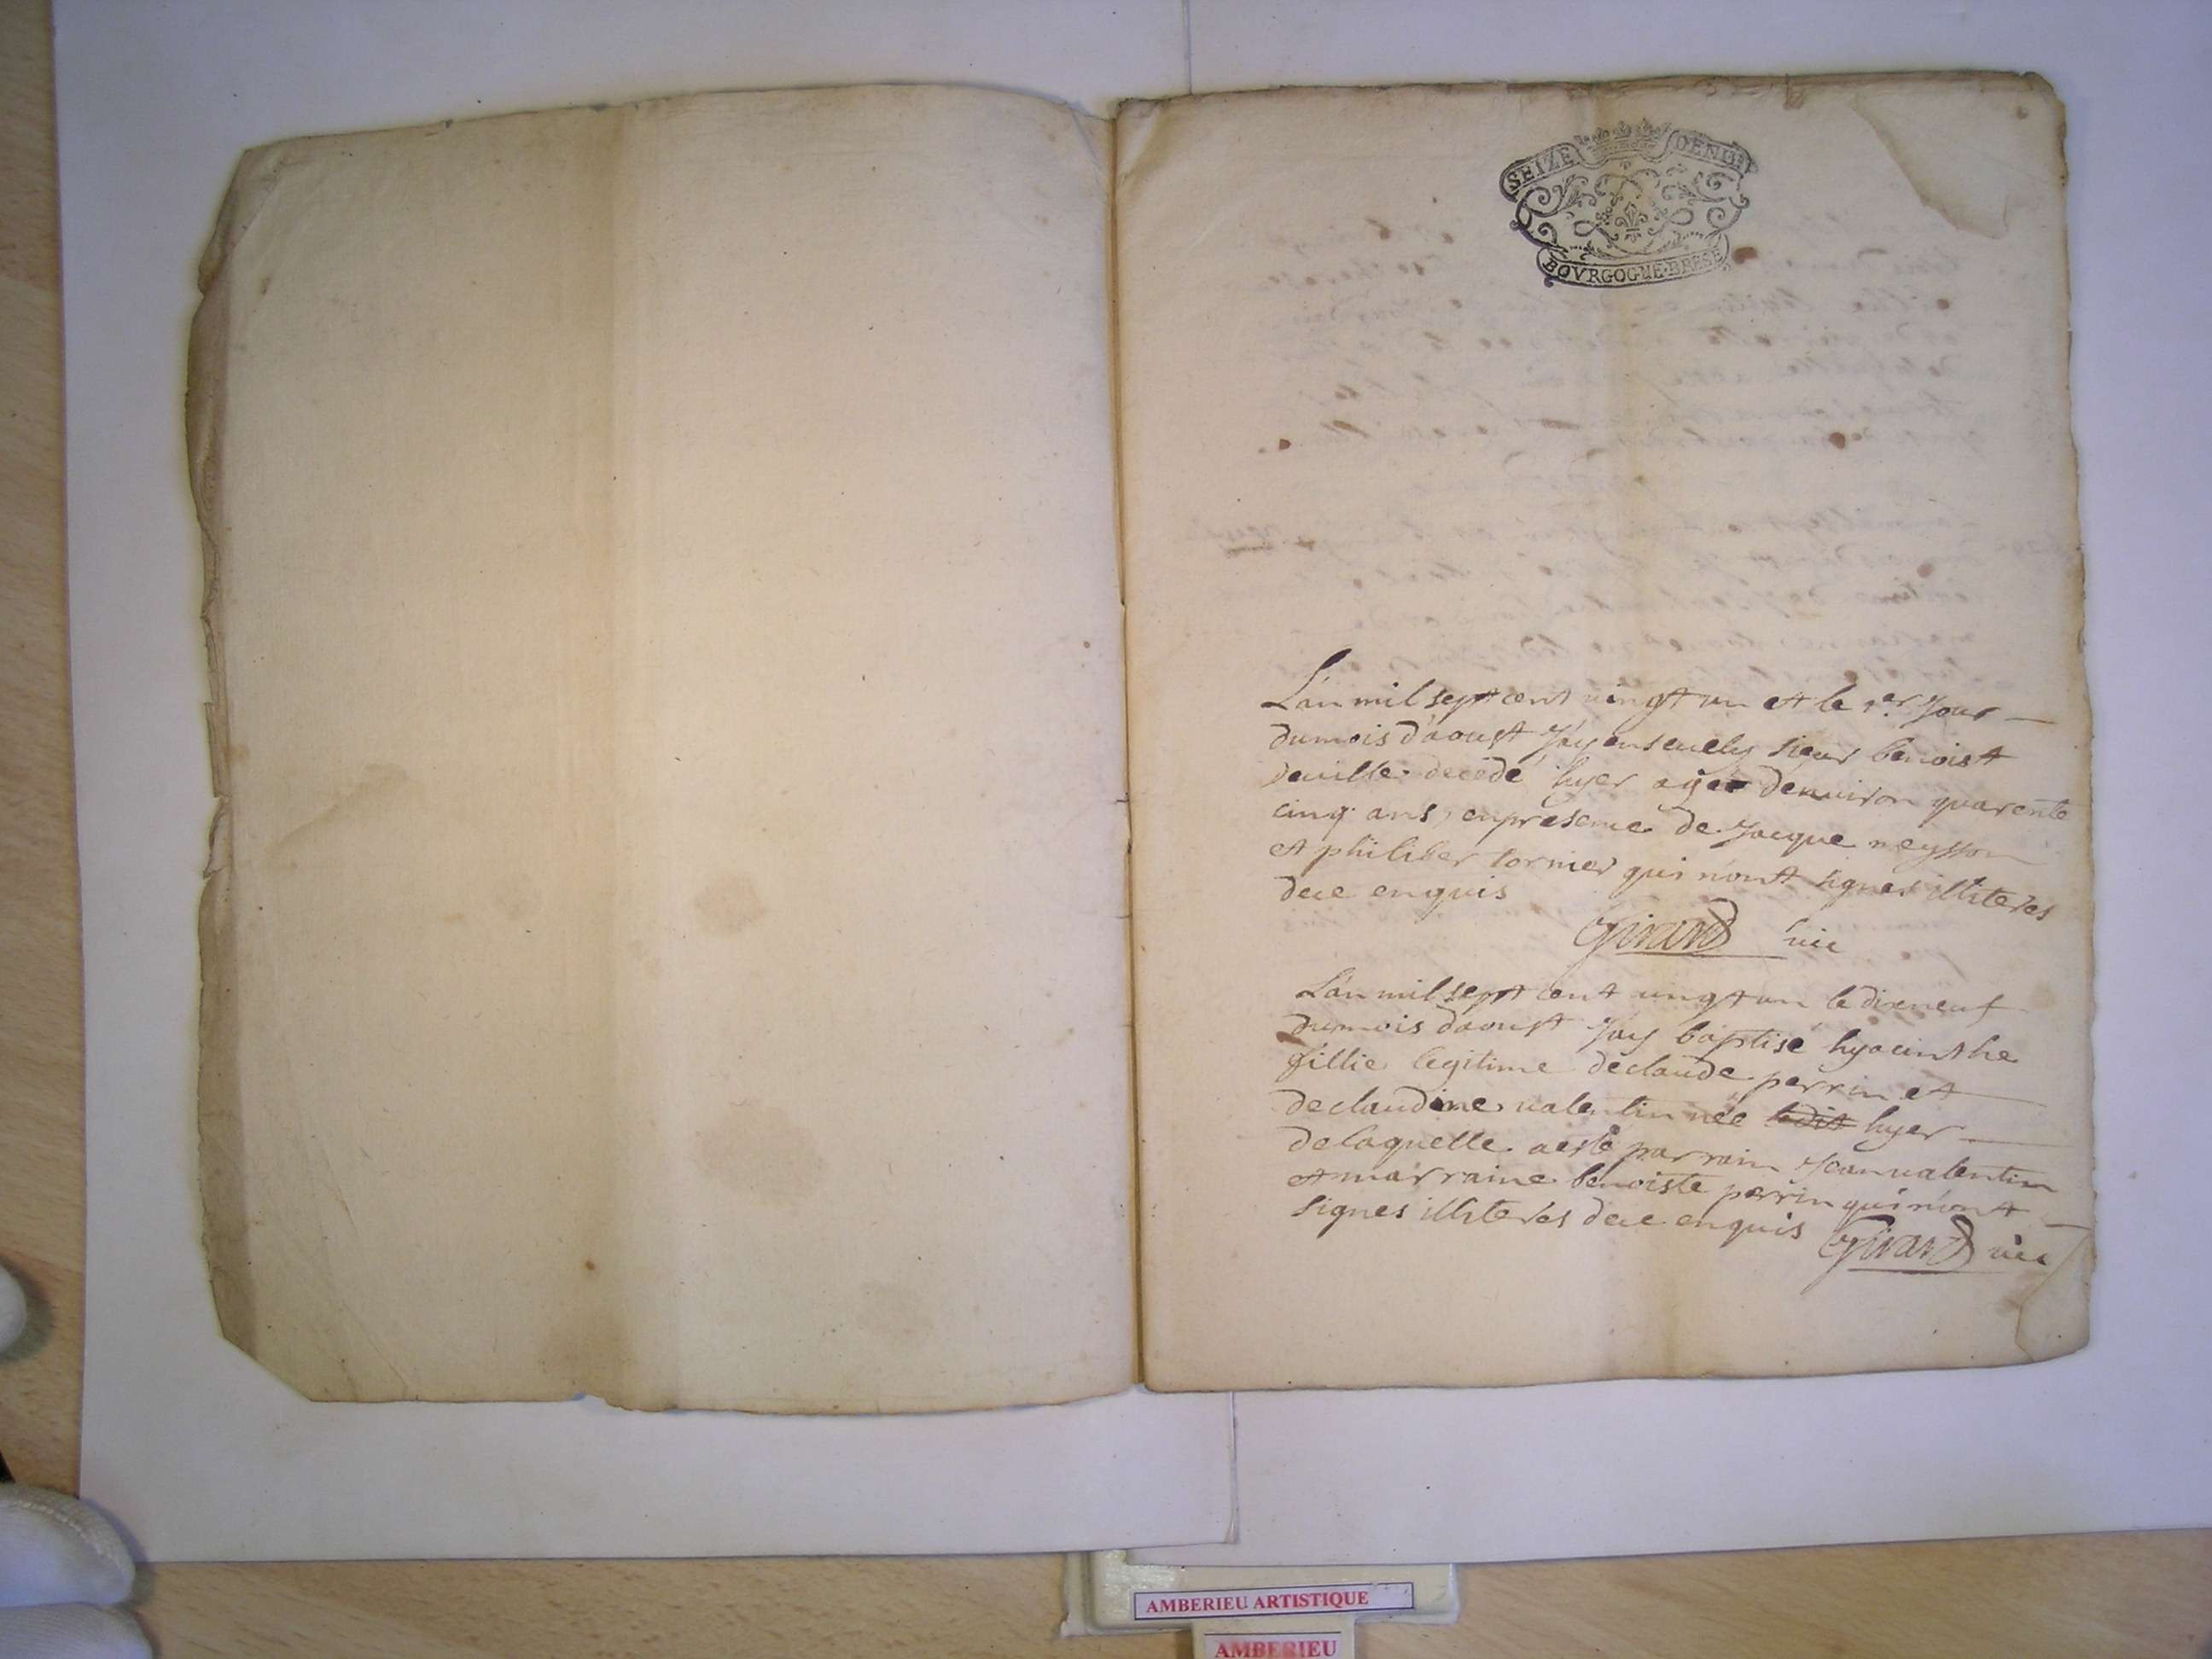 SEIZE DENIE
BOVRGOGNE·BRESE
L'an mil sept cent vingt un et le 1er Jour
du mois d'aoust J'ay ensevely sieur benoist
deville decedé hyer agé denviron quarente
cinq ans, en presence de Jacque neysson
et philiber tornier qui n'ont signes illiteres
dece enquis
Girard vic
L'an mil sept cent vingt un le dixneuf
du mois d'aoust J'ay baptisé hyacinthe
fillie legitime declaude perrin et
declaudine valentin née ledit hyer
de laquelle a esté parrain Jean valentin
et marraine benoiste perrin qui n'ont
signes illiteres dece enquis Girard vic
AMBERIEU ARTISTIQUE
AMBERIEU